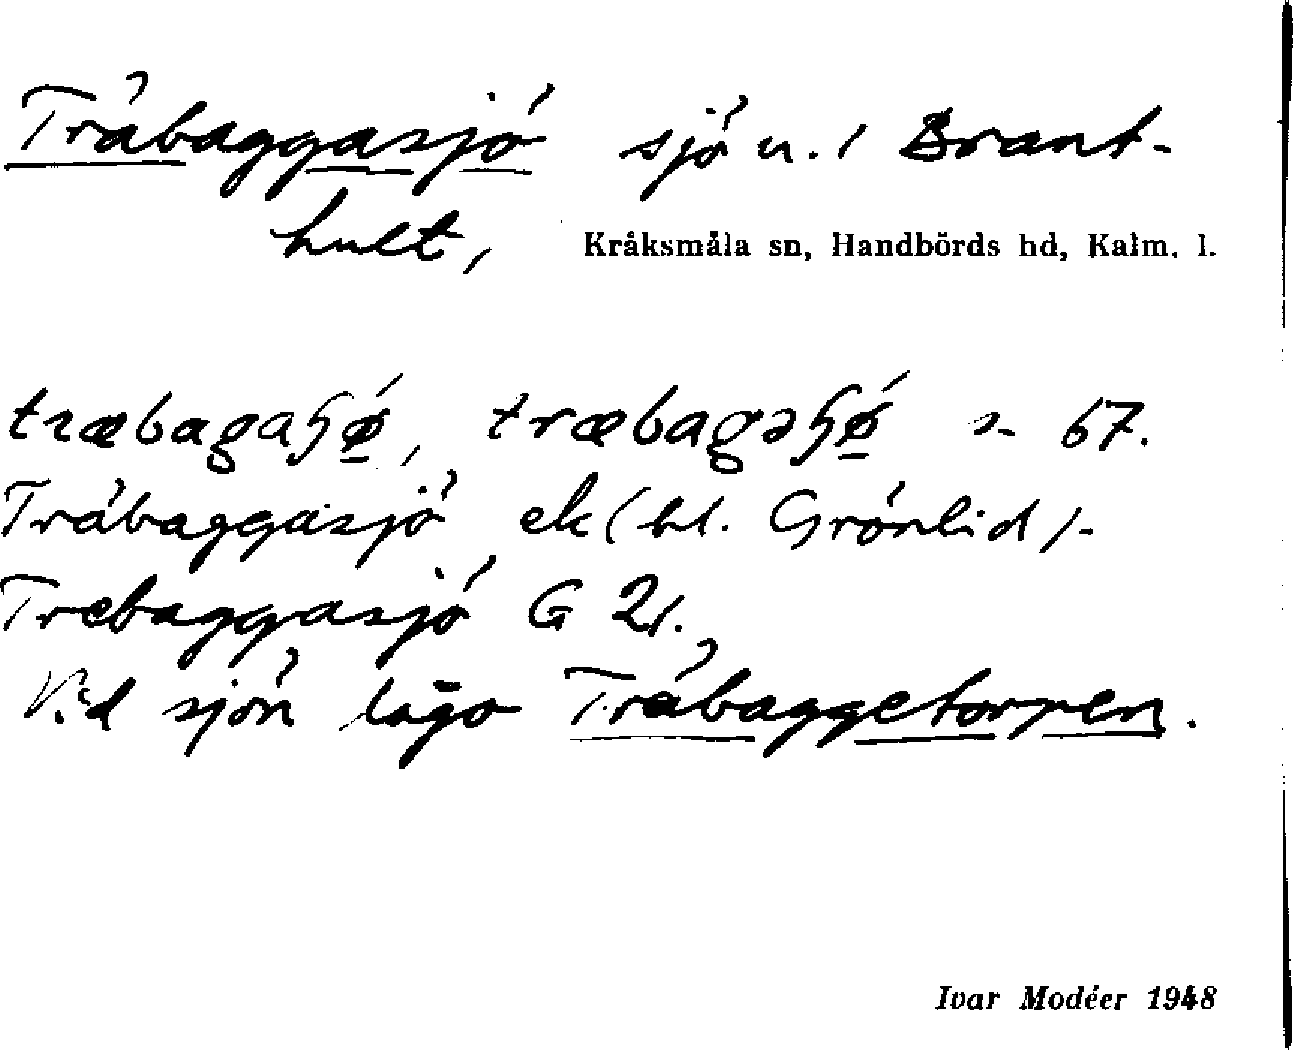 Träbaggasjö sjö u. / Brant-
hult,
Kråksmåla sn, Handbörds hd, Kalm. l.
træbagaɧǿ, træbagəɧǿ s- 67.
Träbaggasjö ek (bl. Grönlid)-
Trebaggasjö G 21.
Vid sjön lågo Träbaggetorpen.
Ivar Modéer 1948